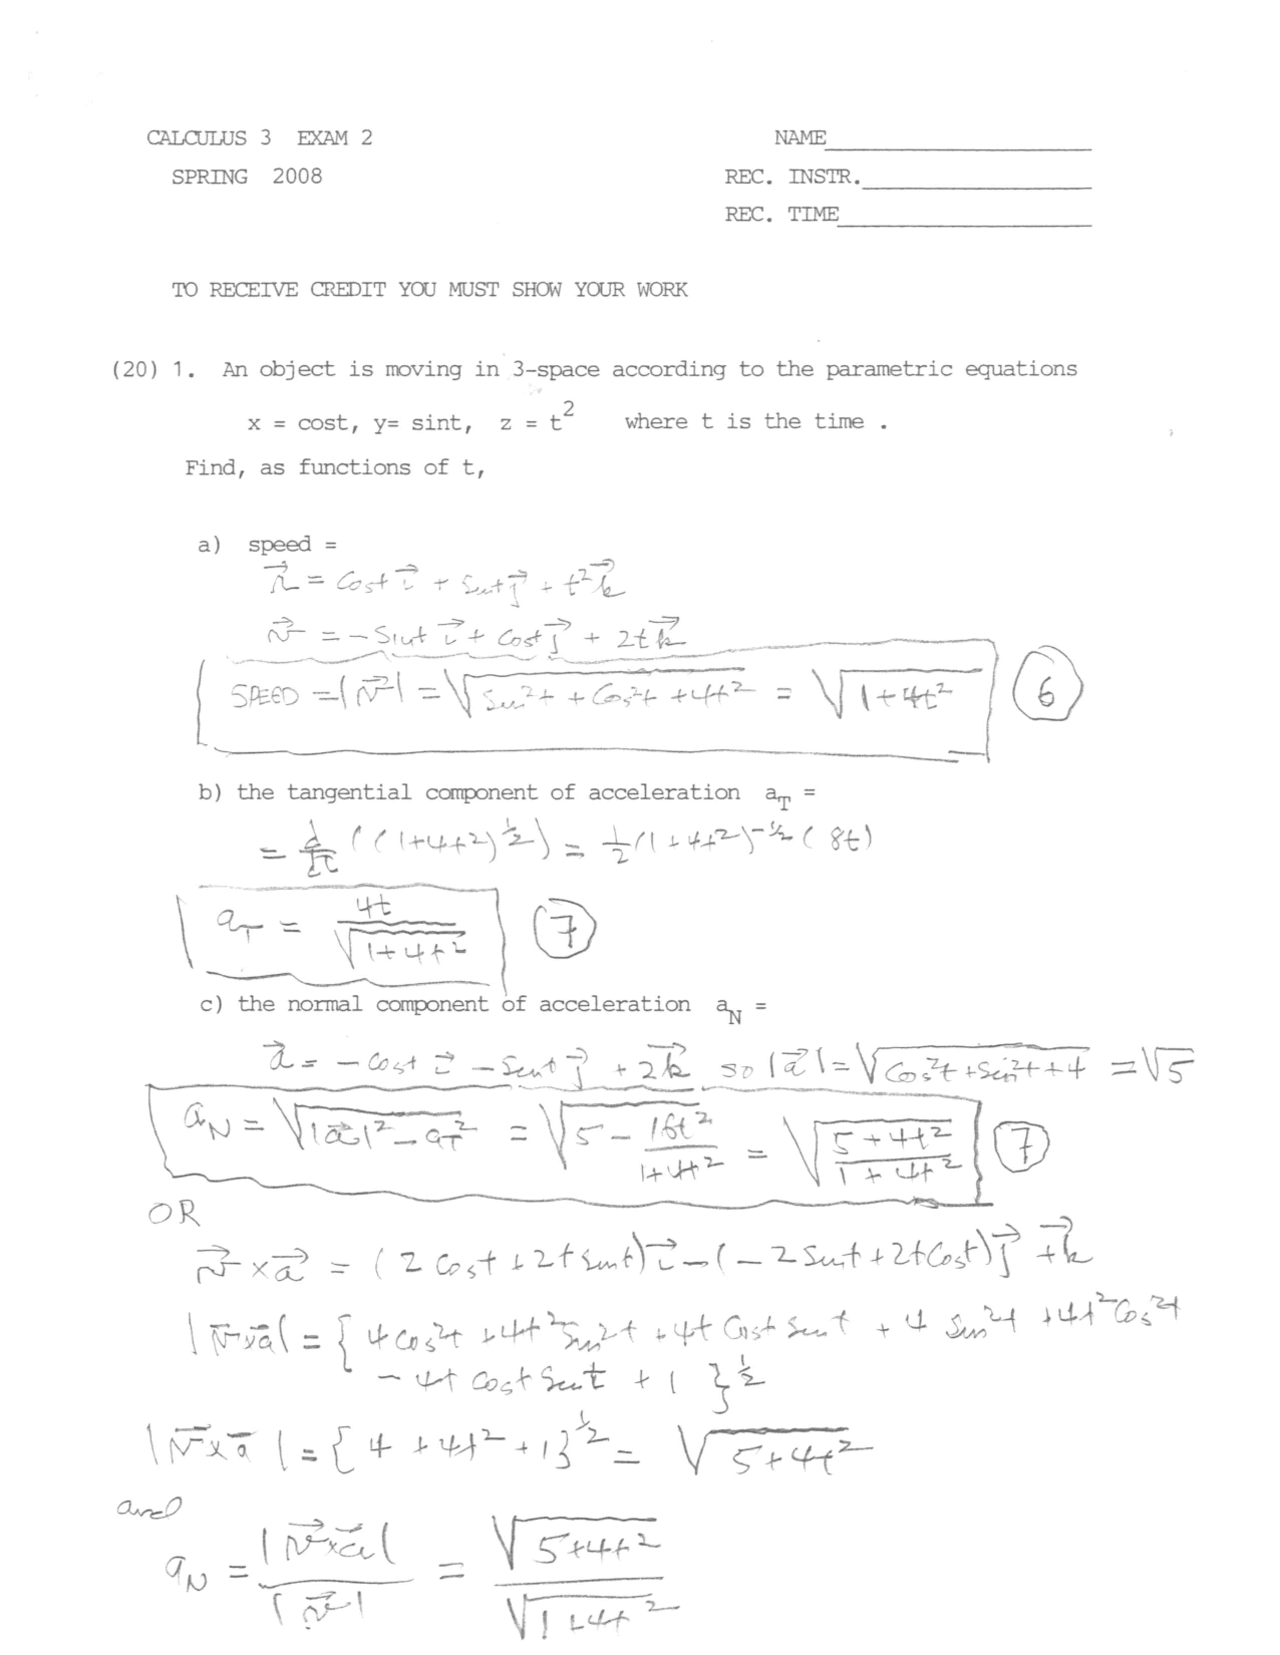 CALCULUS 3 EXAM 2 NAME
SPRING 2008 REC. INSTR.
REC. TIME
TO RECEIVE CREDIT YOU MUST SHOW YOUR WORK
(20) 1. An object is moving in 3-space according to the parametric equations
x = cost, y= sint, z = t² where t is the time .
Find, as functions of t,
a) speed =
r⃗ = cost i⃗ + sint j⃗ + t² k⃗
v⃗ = -sint i⃗ + cost j⃗ + 2t k⃗
SPEED = |v⃗| = √(sin²t + cos²t + 4t²) = √(1+4t²) 6
b) the tangential component of acceleration a_T =
= d/dt ((1+4t²)^½) = 1/2 (1+4t²)^-½ (8t)
a_T = 4t/√(1+4t²) 7
c) the normal component of acceleration a_N =
a⃗ = -cost i⃗ - sint j⃗ + 2k⃗ so |a⃗| = √(cos²t + sin²t + 4) = √5
a_N = √(|a⃗|² - a_T²) = √(5 - 16t²/(1+4t²)) = √((5+4t²)/(1+4t²)) 7
OR
v⃗ × a⃗ = (2cost + 2t sint) i⃗ - (-2sint + 2t cost) j⃗ + k⃗
|v⃗×a⃗| = {4cos²t + 4t² sin²t + 4t cost sint + 4 sin²t + 4t² cos²t
- 4t cost sint + 1}^½
|v⃗×a⃗| = {4 + 4t² + 1}^½ = √(5+4t²)
and
a_N = |v⃗×a⃗|/|v⃗| = √(5+4t²)/√(1+4t²)